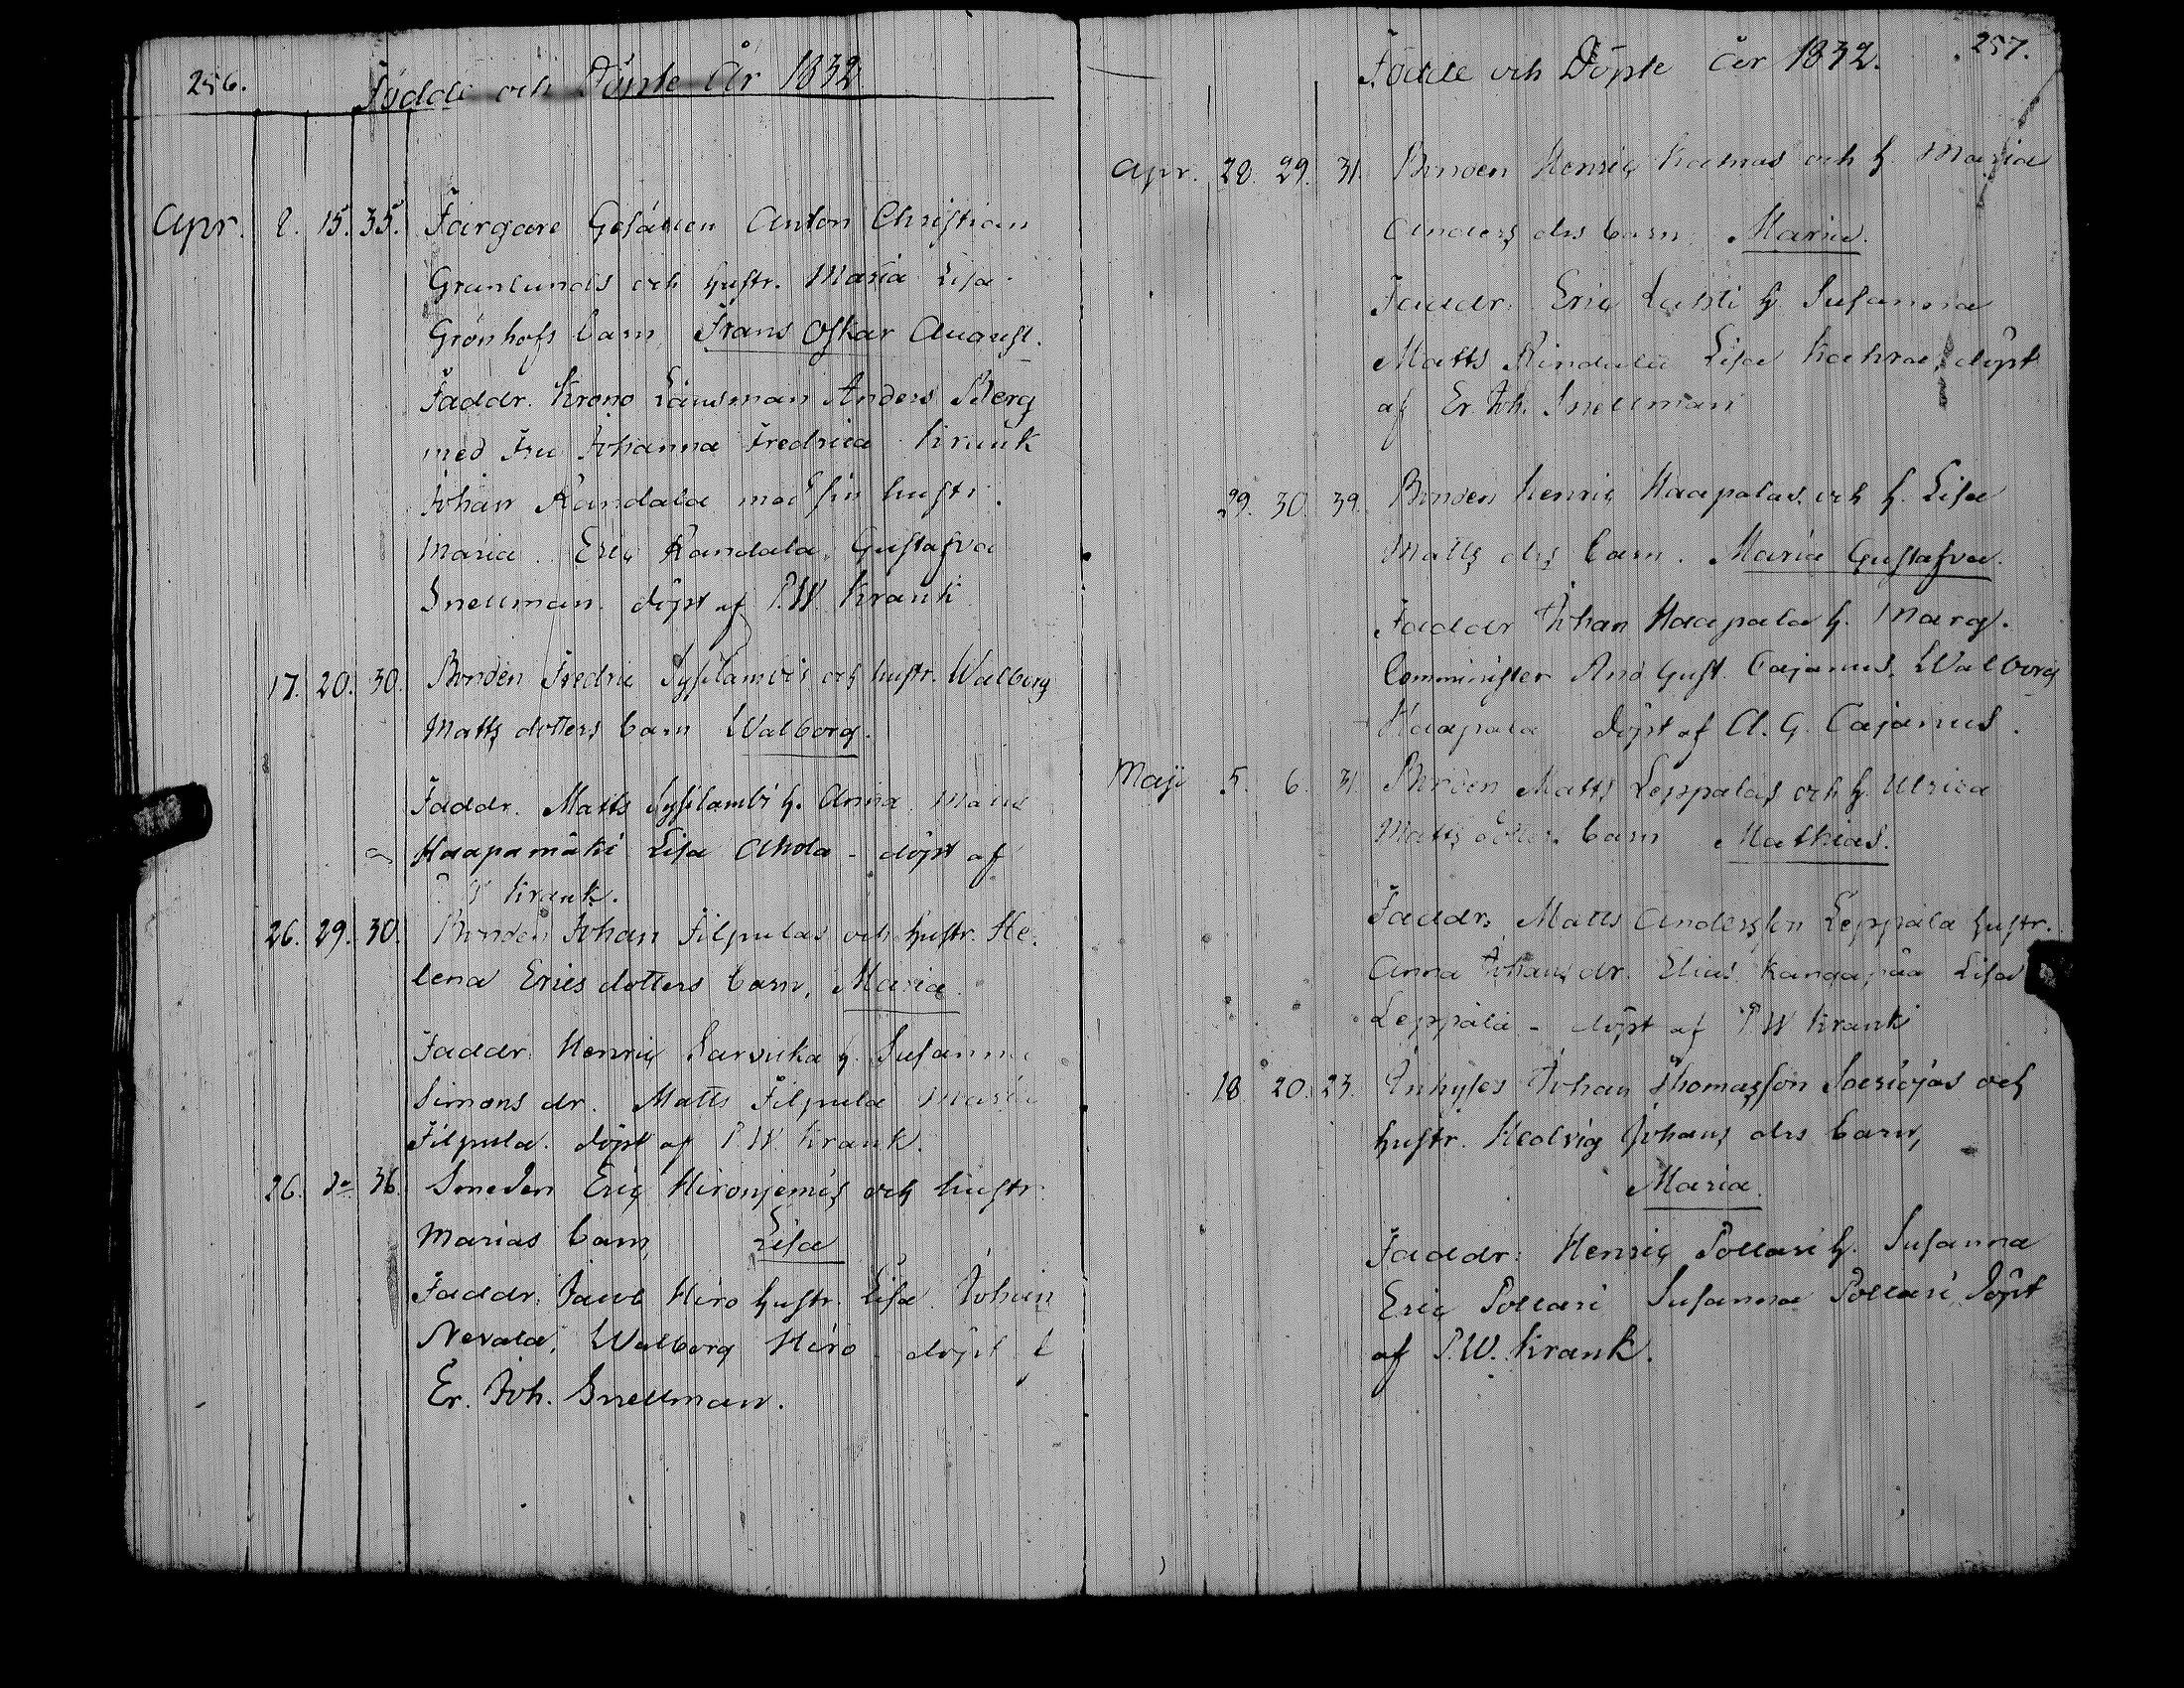 256.
Födde och Döpte År 1832
Apr. 8. 15. 35. Färgare Gesällen Anton Christian
Granlunds och hustr. Maria Lisa
Grönhofs barn, Frans Oskar August.
Faddr. Krono Länsman Anders Berg
med Fru Johanna Fredrica Krank
Johan Kandala med sin hustr.
Maria. Eric Kandala, Gustafva
Snellman. döpt af P.W. Krank
17. 20. 30. Bonden Fredric Syfilambis och hustr. Walborg
Matts dotters barn Walborg.
Faddr. Matts Syfilambi h. Anna
Haapamäki Lisa Ahola - döpt af
Krank.
26. 29. 30. Bonden Johan Filpulas och hustr. He-
lena Erics dotters barn, Maria.
Faddr. Henric Sarvicka h. Susanna
Simons dr. Matts Filpula Maria
Filpula. döpt af P.W. Krank.
26. do 36. Smeden Eric Hironjemis och hustr.
Marias barn, Lisa
Faddr. Jacob Hiro hustr. Lisa. Johan
Nevala, Walborg Hiro - döpt
Er. Joh. Snellman.
Födde och Döpte år 1832. 257.
Apr. 28. 29. 31. Bonden Henric och h. Maria
Anders drs barn, Maria.
Faddr. Eric Lahti h. Susanna
Matts Rindala Lisa döpt
af Er. Joh. Snellman
29. 30. 39. Bonden Henric Haapalas och h. Lisa
Matts drs barn. Maria Gustafva.
Faddr Johan Haapala h. Marg.
Comminister And Gust. Cajanus, Walborg
Haapala döpt af A. G. Cajanus.
Maji 5. 6. 31. Bonden Matts Leppälas och h. Ulrica
Matts dotter. barn Mathias.
Faddr. Matts Andersson Leppälä hustr.
Anna Johans dr. Elias Kangapää Lisa
Leppälä - döpt af P W Krank
18 20. 23. Inhyses Johan Thomasson och
hustr. Hedvig Johans drs barn,
Maria
Faddr: Henric Pollari h. Susanna
Eric Pollari Susanna Pollari Döpt
af P.W. Krank.